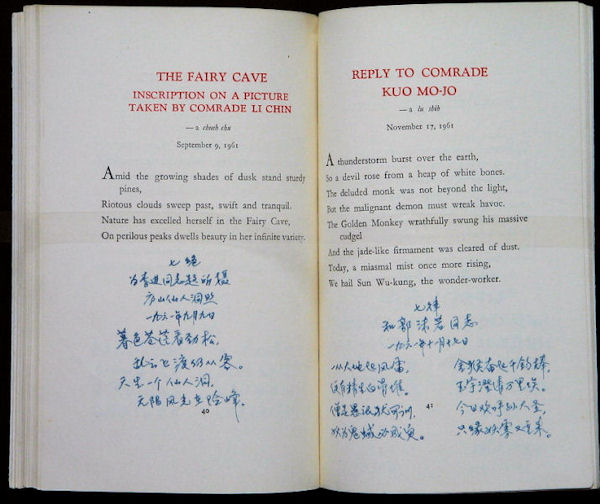 THE FAIRY CAVE
INSCRIPTION ON A PICTURE
TAKEN BY COMRADE LI CHIN
— a chueh chu
September 9, 1961
Amid the growing shades of dusk stand sturdy
pines,
Riotous clouds sweep past, swift and tranquil.
Nature has excelled herself in the Fairy Cave,
On perilous peaks dwells beauty in her infinite variety.
七绝
为李进同志题所摄
庐山仙人洞照
一九六一年九月九日
暮色苍茫看劲松,
乱云飞渡仍从容。
天生一个仙人洞,
无限风光在险峰。
40
REPLY TO COMRADE
KUO MO-JO
— a lu shih
November 17, 1961
A thunderstorm burst over the earth,
So a devil rose from a heap of white bones.
The deluded monk was not beyond the light,
But the malignant demon must wreak havoc.
The Golden Monkey wrathfully swung his massive
cudgel
And the jade-like firmament was cleared of dust.
Today, a miasmal mist once more rising,
We hail Sun Wu-kung, the wonder-worker.
七律
和郭沫若同志
一九六一年十一月十七日
一从大地起风雷,
便有精生白骨堆。
僧是愚氓犹可训,
妖为鬼蜮必成灾。
金猴奋起千钧棒,
玉宇澄清万里埃。
今日欢呼孙大圣,
只缘妖雾又重来。
41